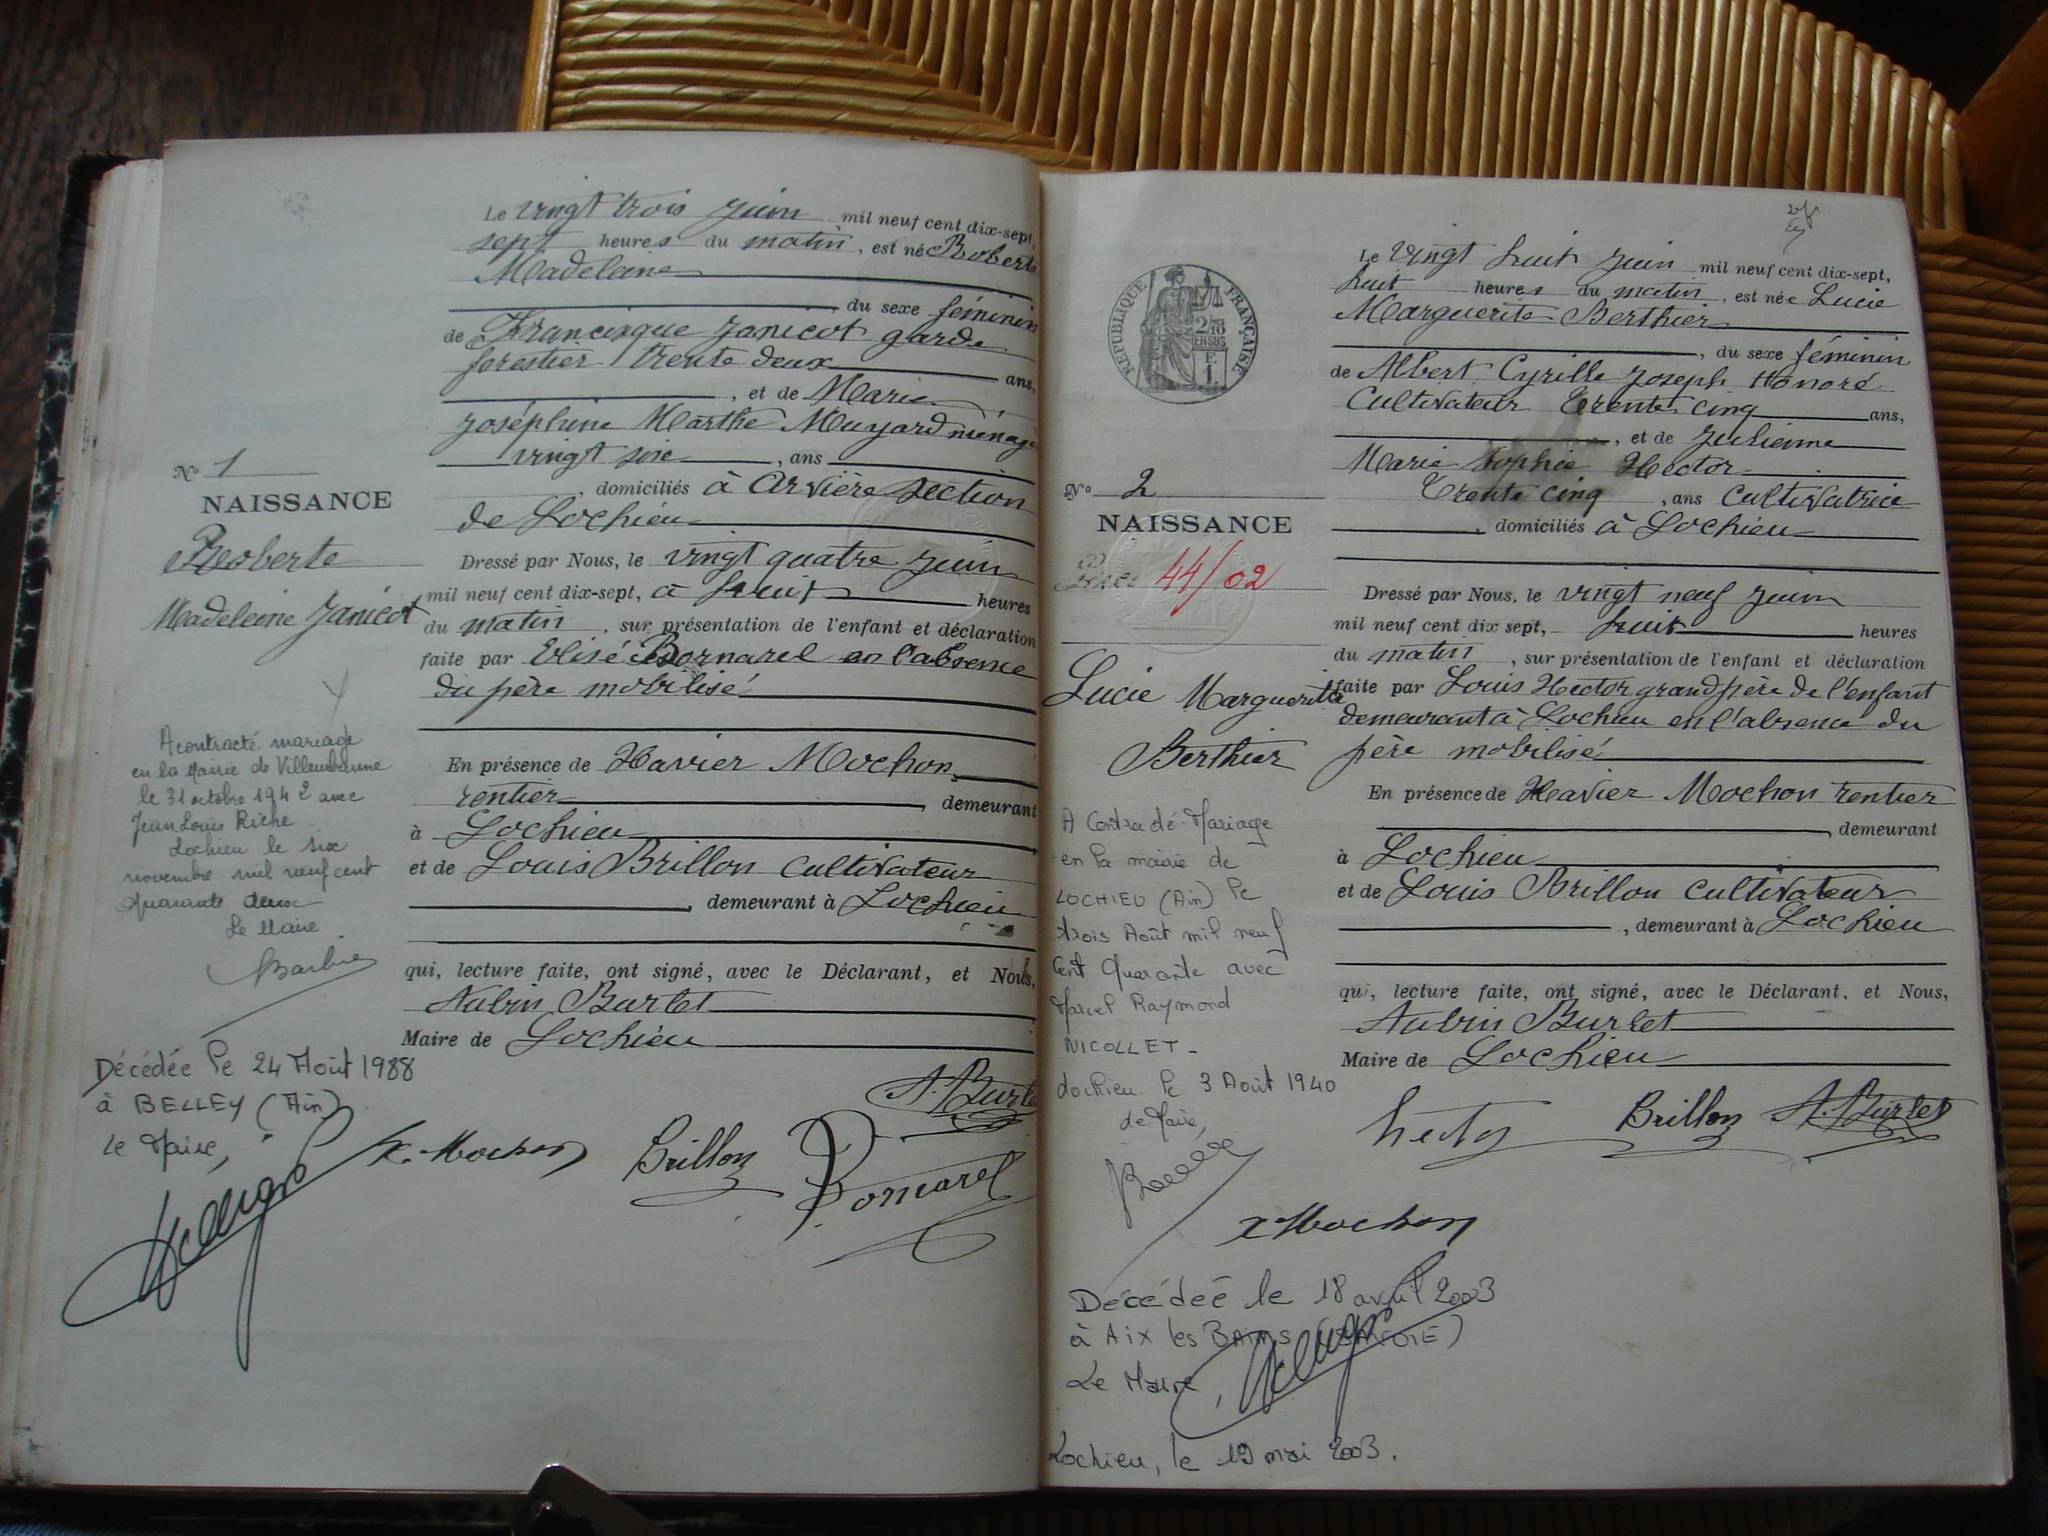 Le vingt trois juin mil neuf cent dix-sept,
sept heures du matin, est né Roberte
Madeleine
du sexe féminin
de Francisque Janicot garde
forestier trente deux ans,
, et de Marie
Joséphine Marthe Muyard ménag
vingt six , ans
, domiciliés à Arvière section
de Lochieu
N° 1
NAISSANCE
Roberte
Madeleine Janicot
Dressé par Nous, le vingt quatre juin
mil neuf cent dix-sept, à huit heures
du matin, sur présentation de l'enfant et déclaration
faite par Elisé Bornarel en l'absence
du père mobilisé
En présence de Xavier Mochon
rentier , demeurant
à Lochieu
et de Louis Brillon cultivateur
, demeurant à Lochieu
qui, lecture faite, ont signé, avec le Déclarant, et Nous,
Aubin Burlet
Maire de Lochieu
A contracté mariage
en la Mairie de Villeurbanne
le 31 octobre 1942 avec
Jean Louis Riche
Lochieu le six
novembre mil neuf cent
quarante deux
Le Maire
Décédée le 24 Août 1988
à BELLEY (Ain)
Le Maire,
A. Burlet
X. Mochon Brillon Bornarel
Le vingt huit juin mil neuf cent dix-sept,
huit heures du matin, est née Lucie
Marguerite Berthier
, du sexe féminin
de Albert Cyrille Joseph Honoré
cultivateur Trente cinq ans,
, et de Julienne
Marie Sophie Hector
Trente cinq , ans cultivatrice
, domiciliés à Lochieu
RÉPUBLIQUE FRANÇAISE
N° 2
NAISSANCE
44/02
Lucie Marguerite
Berthier
Dressé par Nous, le vingt neuf juin
mil neuf cent dix sept, huit heures
du matin, sur présentation de l'enfant et déclaration
faite par Louis Hector grand père de l'enfant
demeurant à Lochieu en l'absence du
père mobilisé
En présence de Xavier Mochon rentier
, demeurant
à Lochieu
et de Louis Brillon cultivateur
, demeurant à Lochieu
qui, lecture faite, ont signé, avec le Déclarant, et Nous,
Aubin Burlet
Maire de Lochieu
A Contracté Mariage
en la mairie de
LOCHIEU (Ain) le
trois Août mil neuf
Cent Quarante avec
Marcel Raymond
NICOLLET -
Lochieu le 3 Août 1940
Le Maire,
Hector Brillon A. Burlet
X Mochon
Décédée le 18 avril 2003
à Aix les BAINS (SAVOIE)
Le Maire,
Lochieu, le 19 mai 2003.